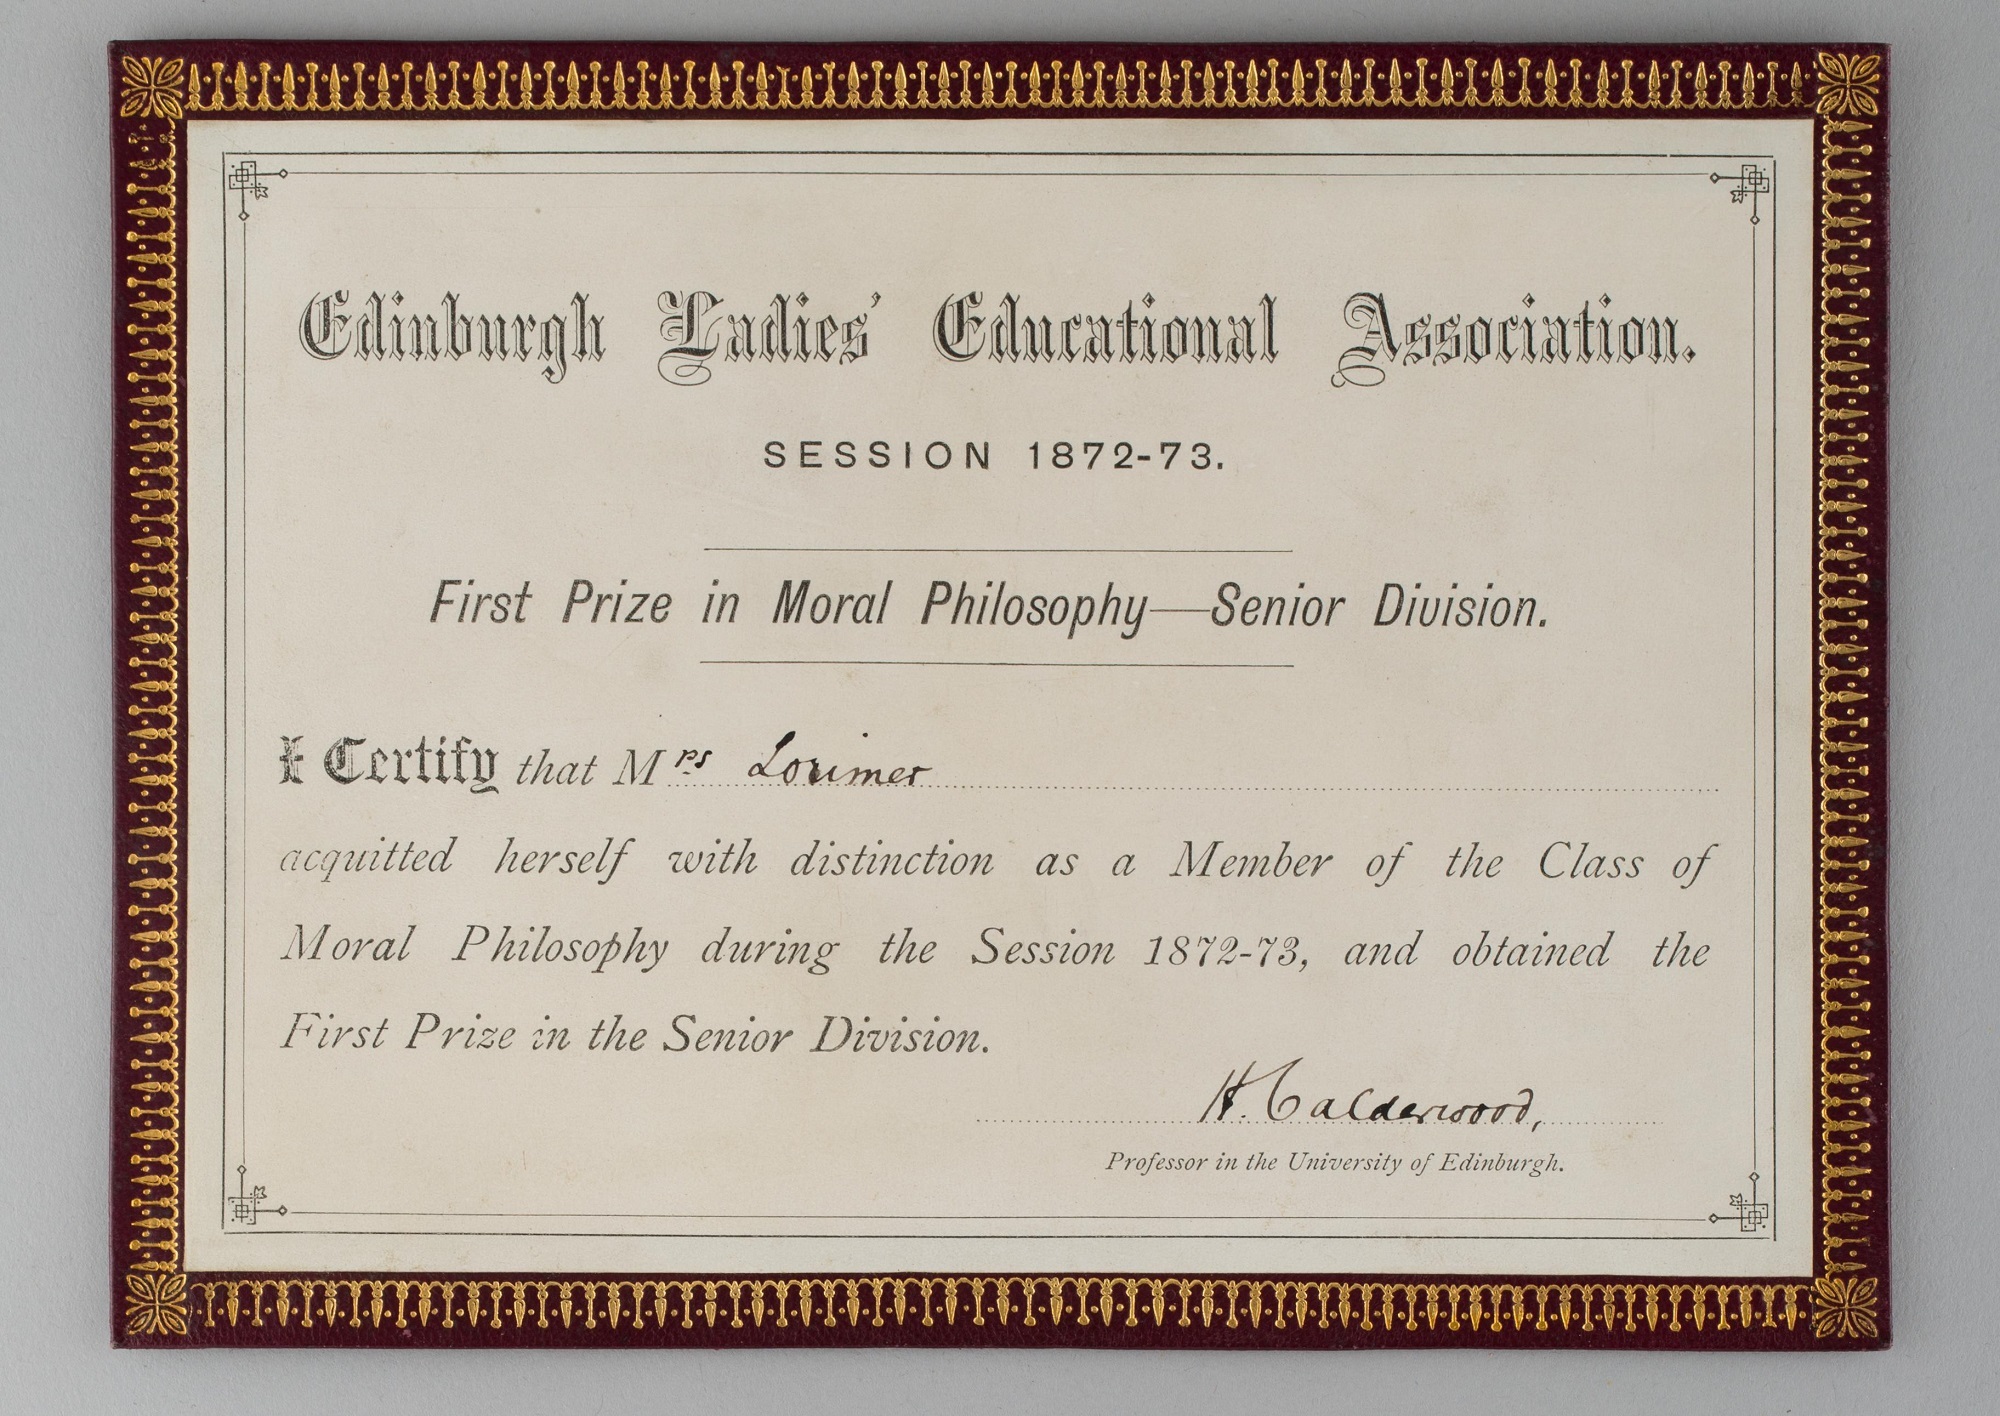 Edinburgh Ladies' Educational Association.
SESSION 1872-73.
First Prize in Moral Philosophy—Senior Division.
I Certify that Mrs Lorimer
acquitted herself with distinction as a Member of the Class of
Moral Philosophy during the Session 1872-73, and obtained the
First Prize in the Senior Division.
H. Calderwood,
Professor in the University of Edinburgh.